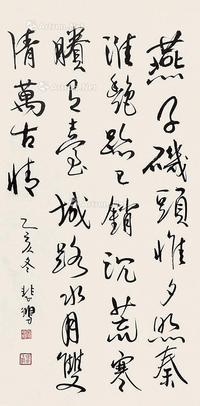 燕子磯頭惟夕照秦
淮艷跡已銷沉荒寒
賸有臺城路水月雙
清萬古情
乙亥冬悲鴻